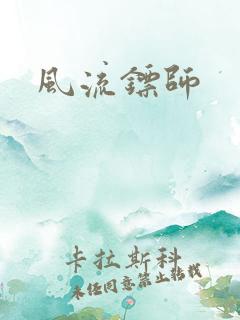 風流鏢師
卡拉斯科
未经同意禁止转载